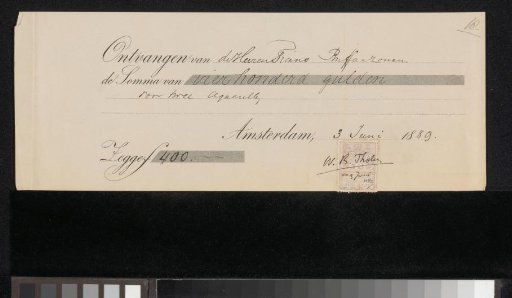 Ontvangen van de Heeren Frans Buffa & zonen
de Somma van vier honderd gulden
voor twee Aquarellen
Amsterdam, 3 Juni 1889.
Zegge f 400.—
W. B. Tholen